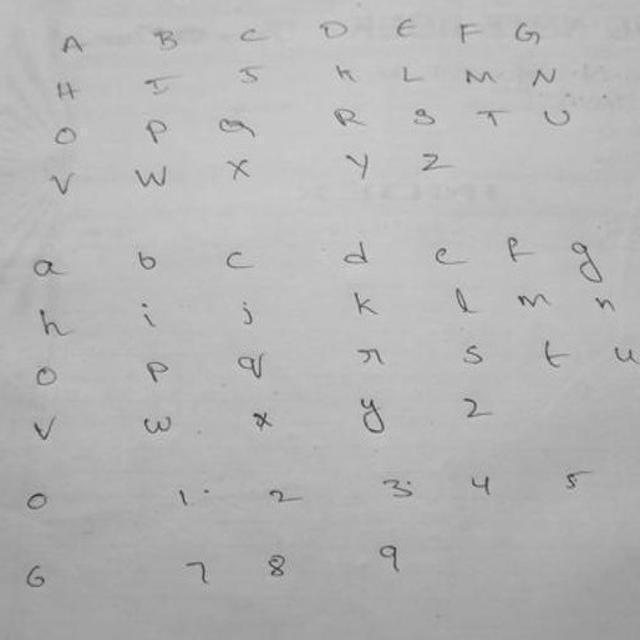 A B C D E F G
H I J K L M N
O P Q R S T U
V W X Y Z
a b c d e f g
h i j k l m n
o p q r s t u
v w x y z
0 1 2 3 4 5
6 7 8 9